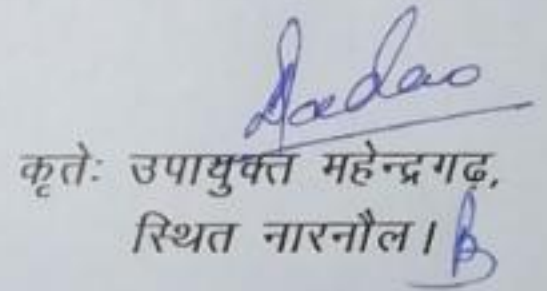 कृतेः उपायुक्त महेन्द्रगढ़,
स्थित नारनौल।